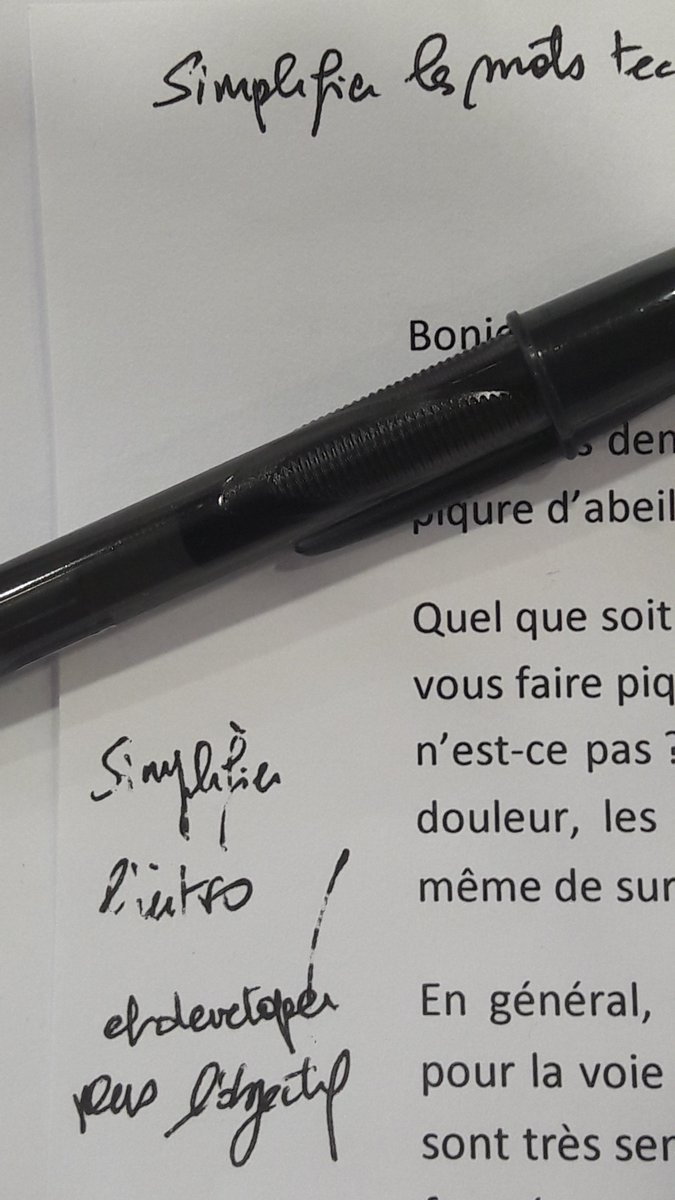 Simplifier les mots tec
Bonjo
s den
piqure d'abeil
Quel que soit
vous faire piq
n'est-ce pas ?
douleur, les
même de sur
En général,
pour la voie
sont très sen
Simplifier
l'intro
et developer
plus l'objectif